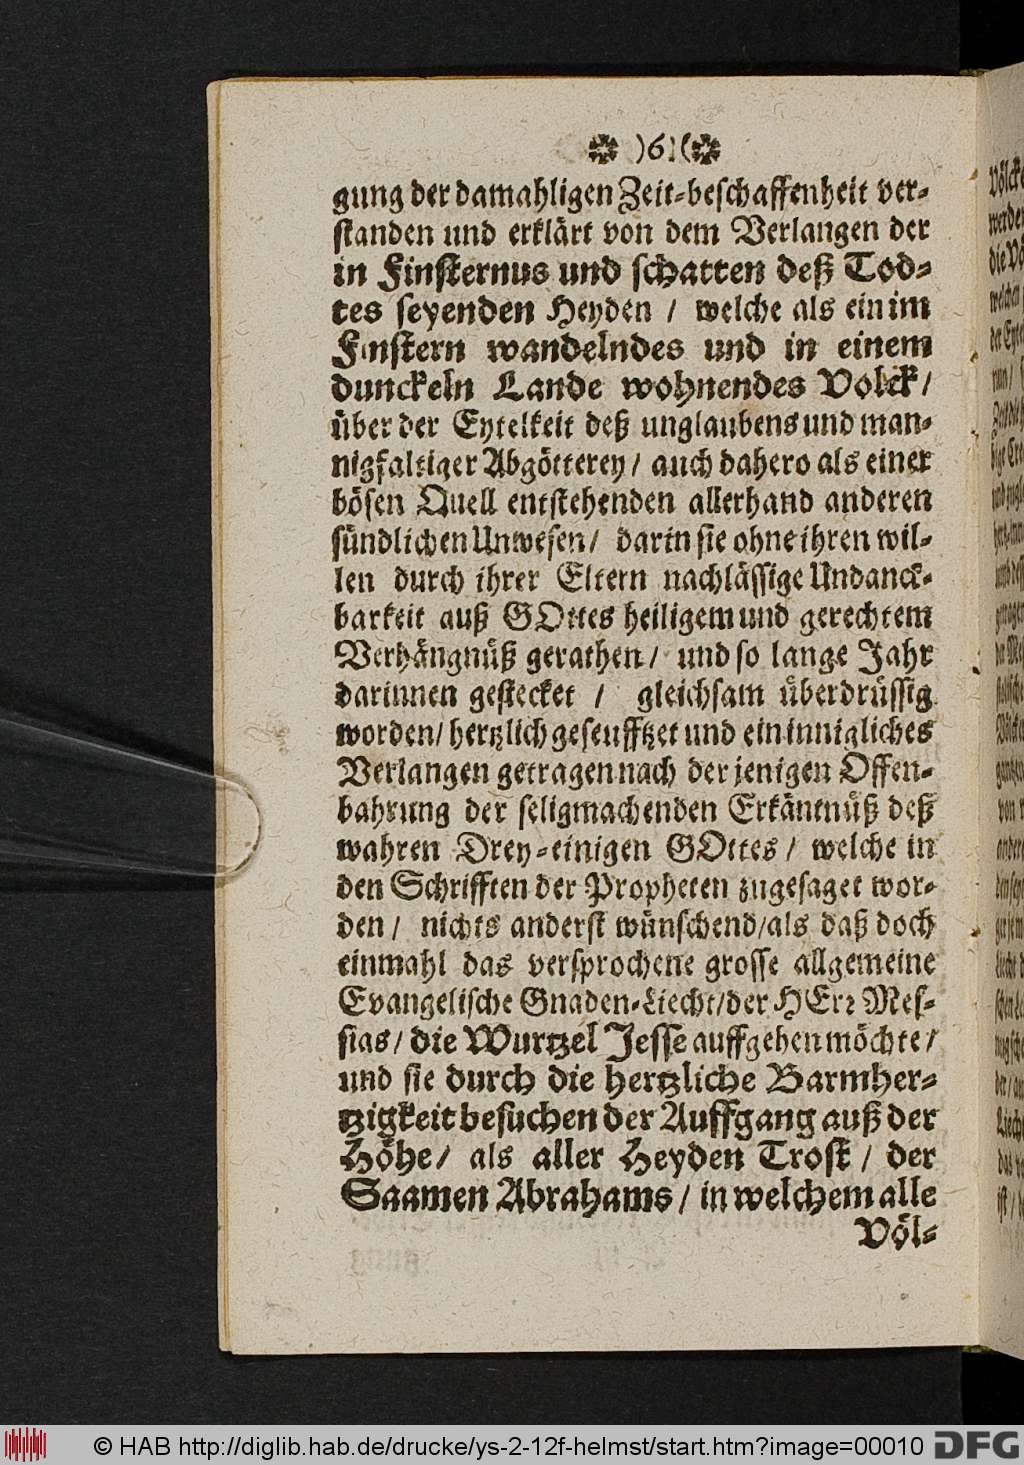 )6(
gung der damahligen Zeit-beschaffenheit ver-
standen und erklärt von dem Verlangen der
in Finsternus und schatten deß Tod-
tes seyenden Heyden / welche als ein im
Finstern wandelndes und in einem
dunckeln Lande wohnendes Volck /
über der Eytelkeit deß unglaubens und man-
nigfaltiger Abgötterey / auch dahero als einer
bösen Quell entstehenden allerhand anderen
sündlichen Unwesen / darin sie ohne ihren wil-
len durch ihrer Eltern nachlässige Undanck-
barkeit auß GOttes heiligem und gerechtem
Verhängnüß gerathen / und so lange Jahr
darinnen gestecket / gleichsam überdrüssig
worden / hertzlich geseufftzet und ein innigliches
Verlangen getragen nach der jenigen Offen-
bahrung der seligmachenden Erkäntnüß deß
wahren Drey-einigen GOttes / welche in
den Schrifften der Propheten zugesaget wor-
den / nichts anderst wünschend / als daß doch
einmahl das versprochene grosse allgemeine
Evangelische Gnaden-Liecht / der HErr Mes-
sias / die Wurtzel Jesse auffgehen möchte /
und sie durch die hertzliche Barmher-
tzigkeit besuchen der Auffgang auß der
Höhe / als aller Heyden Trost / der
Saamen Abrahams / in welchem alle
Völ-
© HAB http://diglib.hab.de/drucke/ys-2-12f-helmst/start.htm?image=00010 DFG